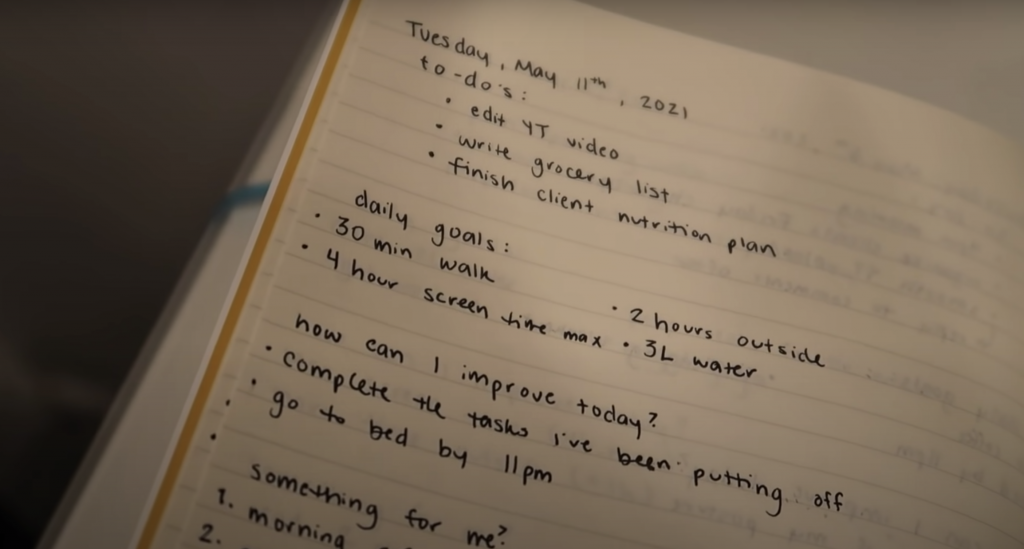 Tuesday, May 11th, 2021
to-do's:
• edit YT video
• write grocery list
• finish client nutrition plan
daily goals:
• 30 min walk
• 2 hours outside
• 4 hour screen time max • 3L water
how can I improve today?
• complete the tasks i've been putting off
• go to bed by 11pm
•
•
something for me?
1. morning
2.